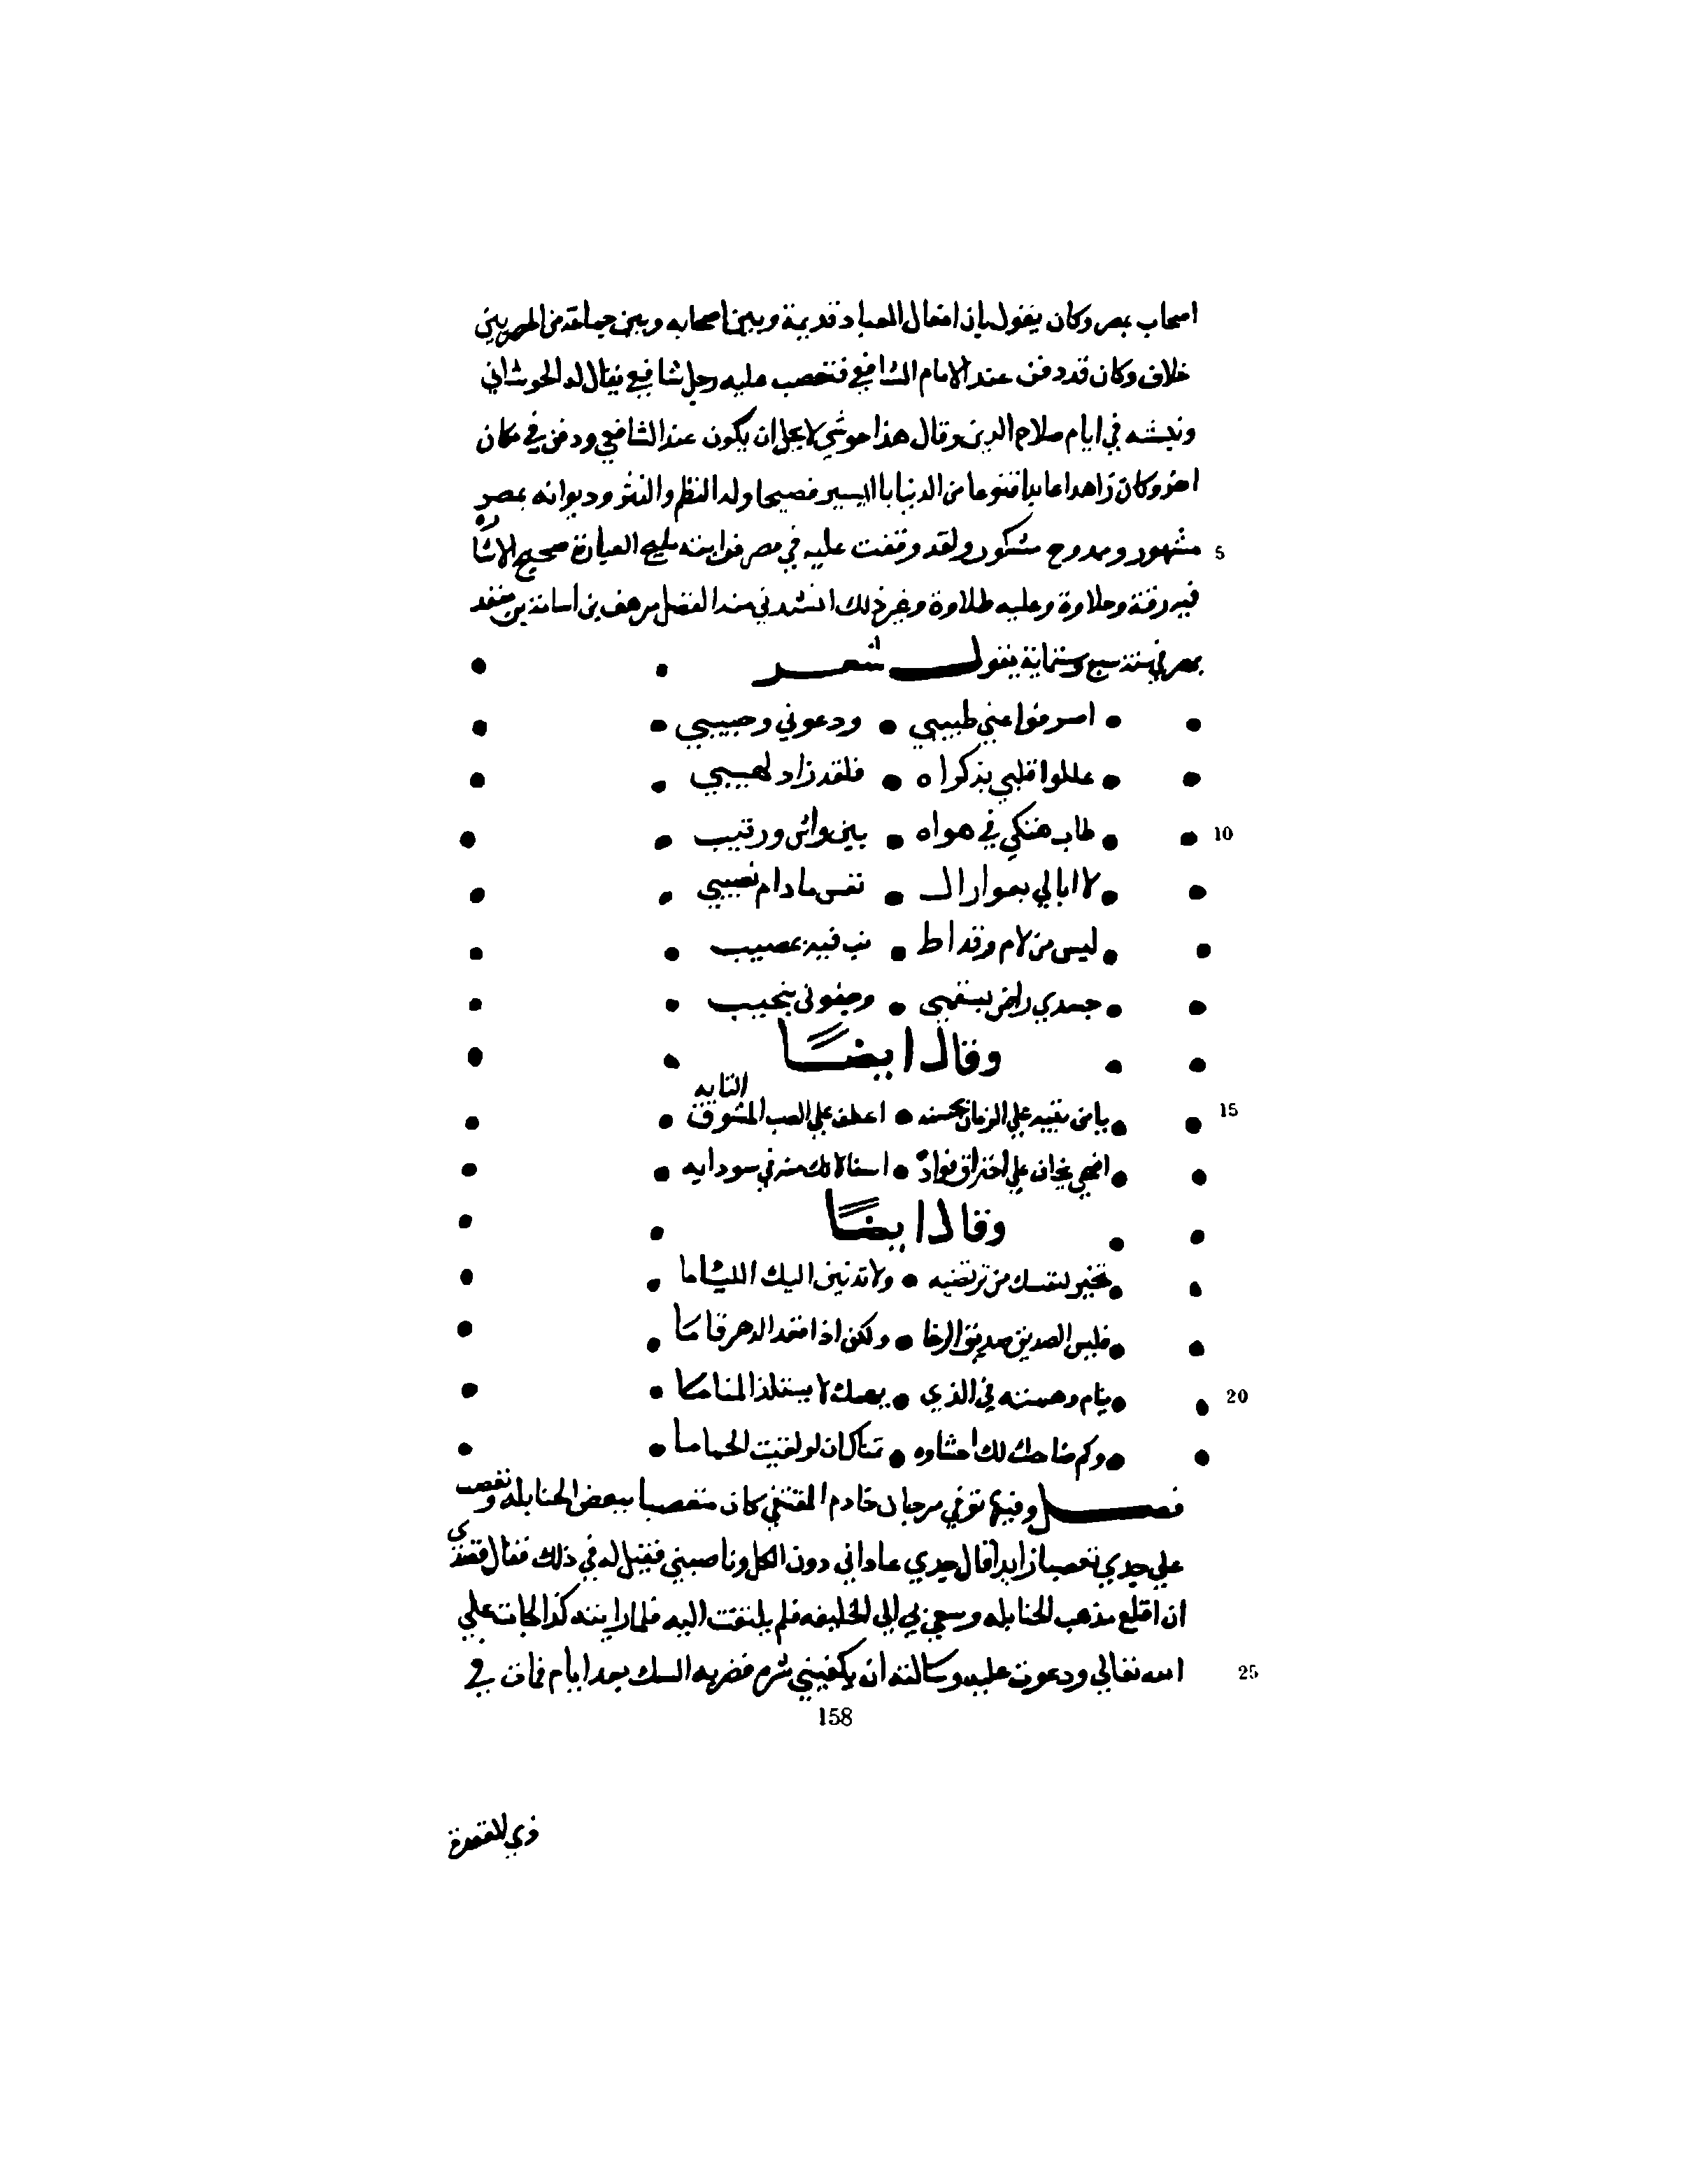 اصحاب بمصر وكان يقول بان افعال العباد قديمة وبين اصحابه وبين جماعة من المصريين
خلاف وكان قد دفن عند الامام الشافعي فتعصب عليه رجل شافعي يقال له الخوشاني
ونبشه في ايام صلاح الدين وقال هذا حوشي لا يحل ان يكون عند الشافعي ودفن في مكان
اخر وكان زاهدا عابدا قنوعا من الدنيا باليسير فصيحا وله النظم والنثر وديوانه بمصر
مشهور وممدوح مشكور ولقد وقفت عليه في مصر فرايته مليح العبارة صحيح الاشارة
فيه رقة وحلاوة وعليه طلاوة وغير ذلك انشدني الفضل مرهف بن اسامة بن منقد
بمصر في سنة سبع وستماية يقول شعر
اصرفوا عني طبيبي • ودعوني وحبيبي
عللوا قلبي بذكراه • فلقد زاد لهيبي
طاب هتكي في هواه • بين واش ورقيب
لا ابالي بموار الـ • نفس ما دام نصيبي
ليس من لام وقد اط • نب فيه بمصيب
جسدي راض بسقمي • وجفوني بنحيب
وقال ايضًا
يا من يتيه علي الزمان بحسنه • اعطف علي الصب المشوق التايه
اضحي يخاف علي احتراق فواده • اسفا لانك منه في سودايه
وقال ايضًا
تخير لنفسك من ترتضيه • ولا تدنين اليك اللياما
فليس الصديق صديق الرخا • ولكن اذا قعد الدهر قاما
ينام وهمته في الذي • يهمك لا يستلذ المناما
وكم ضاحك لك احشاوه • تمناك ان لو لقيت الحماما
فصل وفيها توفي مرجان خادم المقتفي كان متعصبا ببعض الحنابلة وتعصب
علي جدي تعصبا زايدا قال جدي عاداني دون الكل وناصبني فقيل له في ذلك فقال قصدي
ان اقلع مذهب الحنابلة وسعي بي الي الخليفه فلم يلتفت اليه فلما رايته كذا لجات علي
الله تعالي ودعوت عليه وسالته ان يكفيني شره فضربه السل بعد ايام فمات في
158
ذي القعدة
5
10
15
20
25